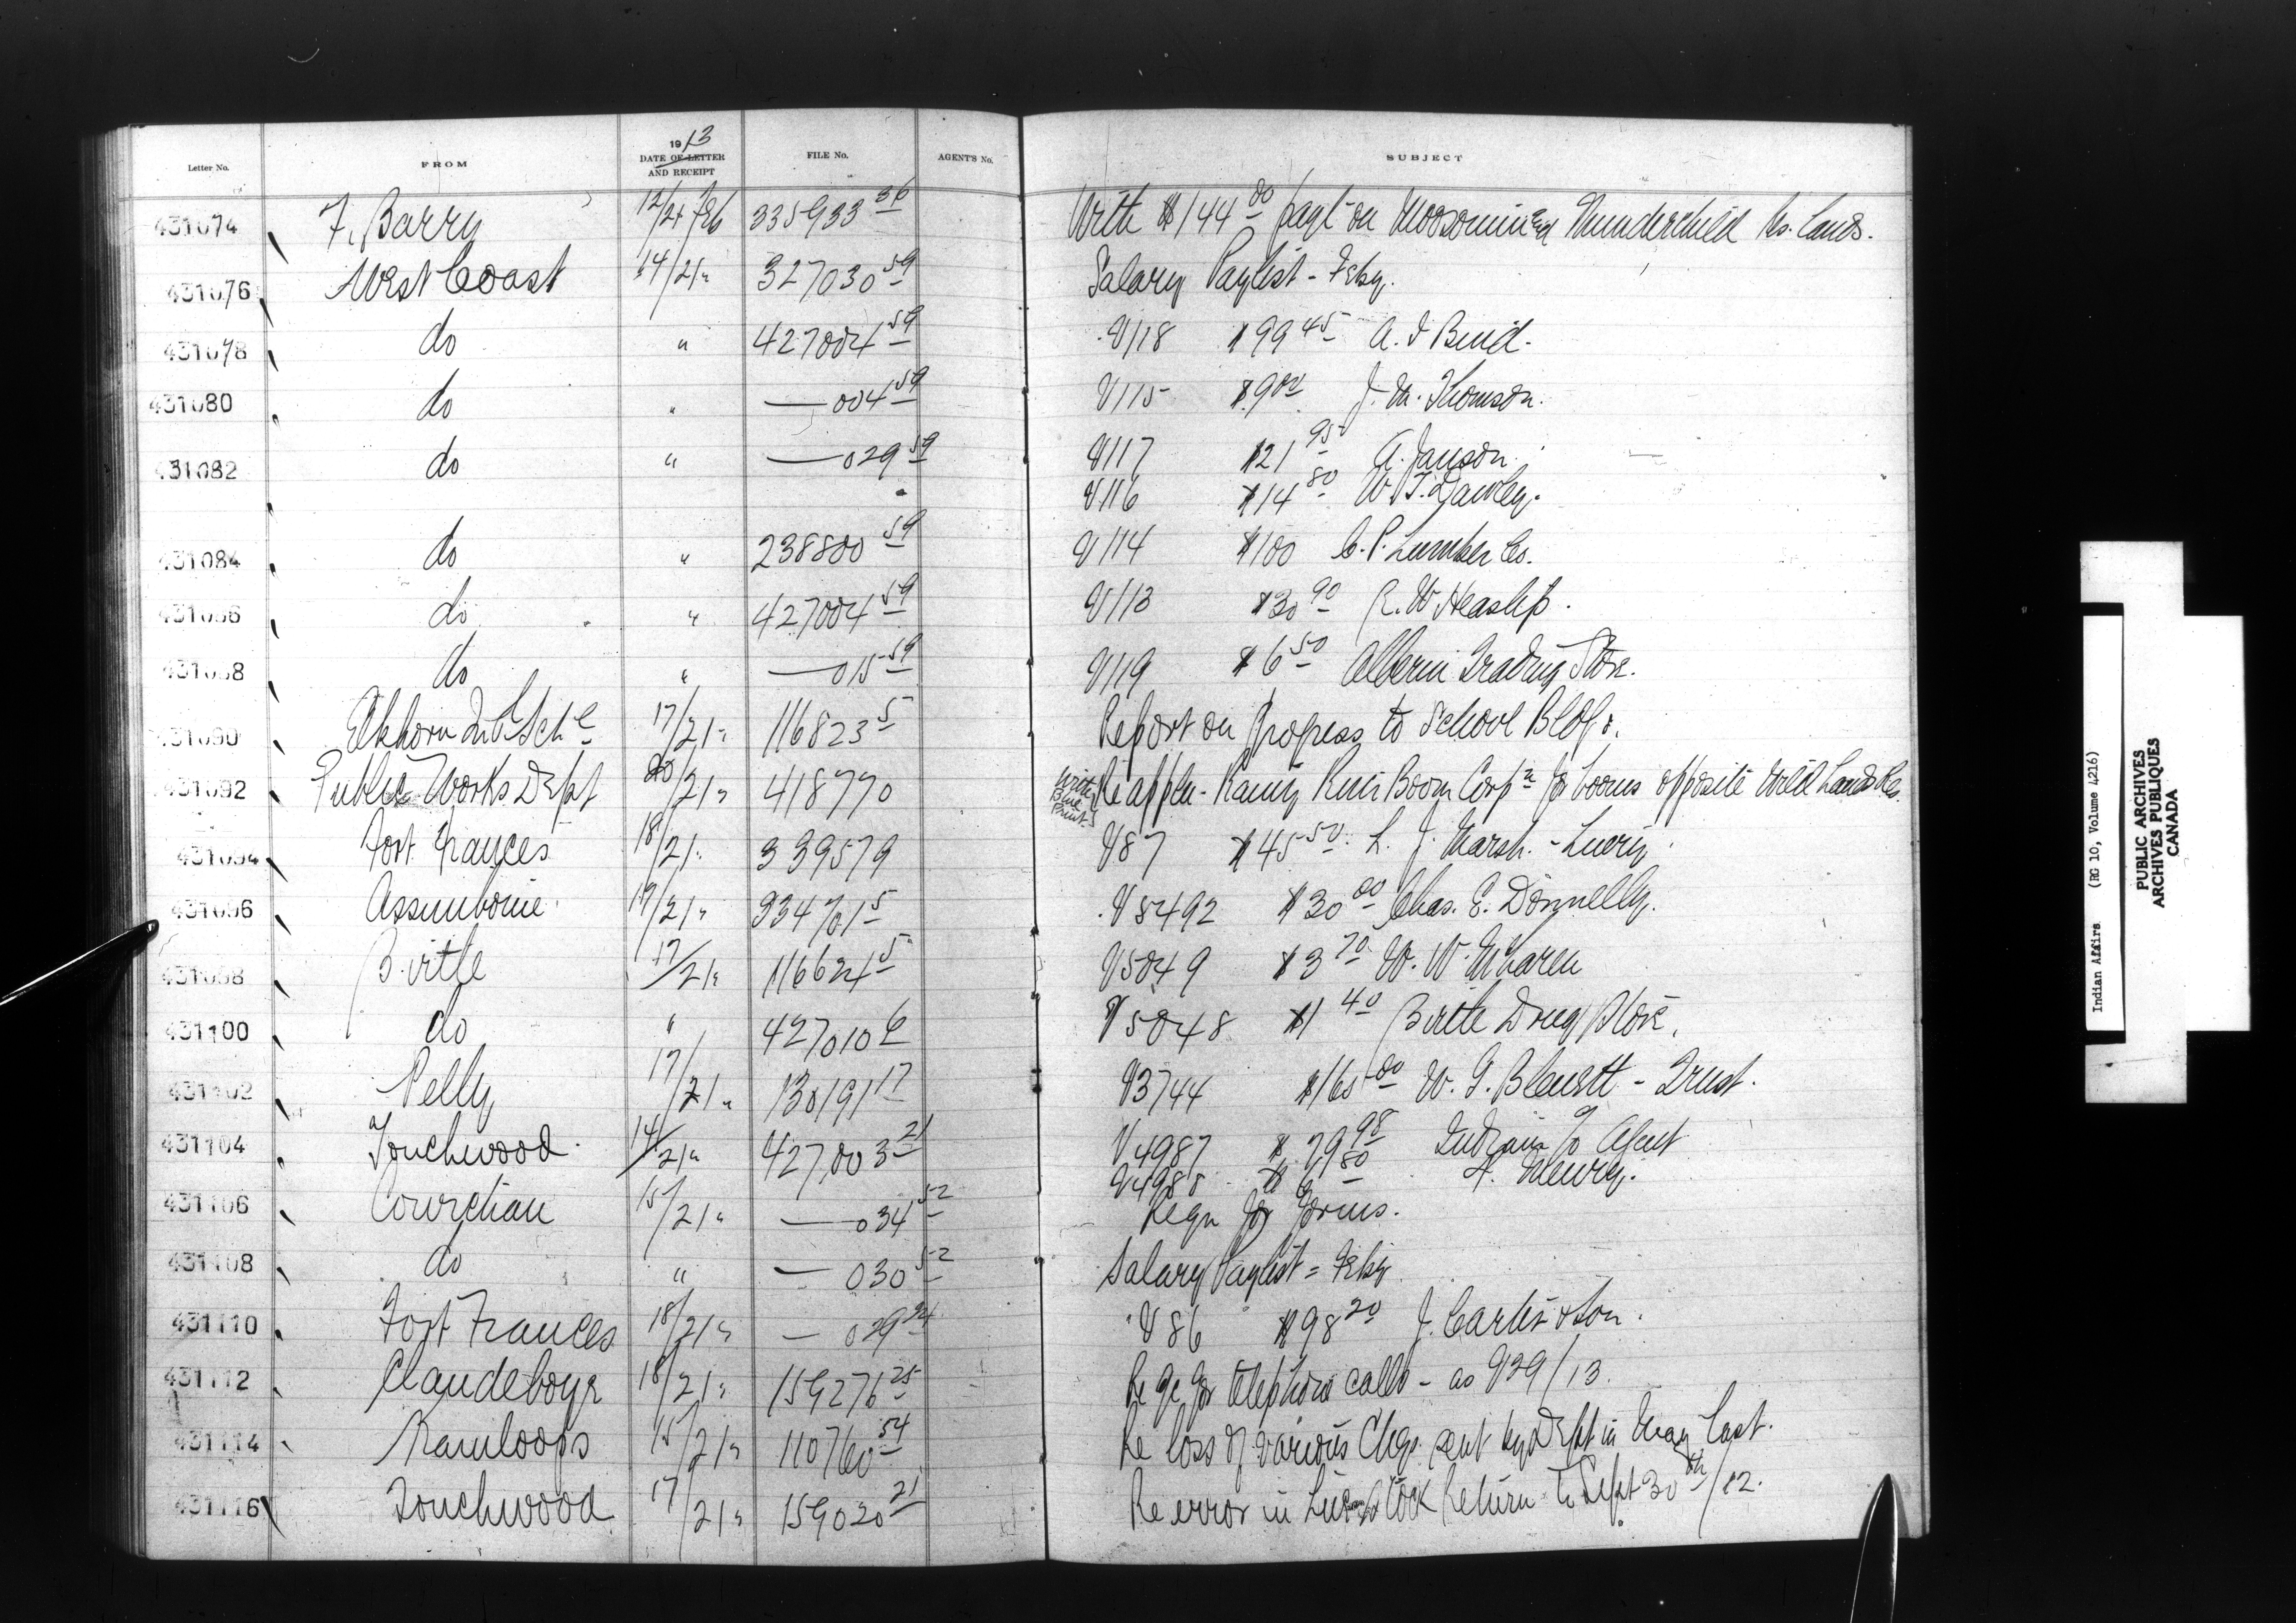 Letter No. FROM 1913 DATE OF LETTER AND RECEIPT FILE No. AGENT'S No. SUBJECT
431074 F. Barry 12/21 Feb 335933 36 With $144 00 payt on Moosomin and Thunderchild Rs. Lands.
431076 West Coast 14/21 " 327030 59 Salary Paylist - Feby.
431078 do " 427004 59 V118 $99 45 A. I Bird.
431080 do " — 004 59 V115 $9 00 J. M. Thomson.
431082 do " — 029 59 V117 $21 95 A. Janson.
V116 $14 80 W. T. Dawley.
431084 do " 238800 59 V114 $100 C. P. Lumber Co.
431086 do " 427004 59 V113 $30 90 R. W Heaslip.
431088 do " — 015 59 V119 $6 50 Alberni Trading Store.
431090 Elkhorn Indl Schl 17/21 " 116823 5 Report on progress to School Bldgs.
431092 Public Works Dept 20/21 " 418770 with Blue Prints Re appln - Rainy River Boom Corpn for booms opposite Wild Lands Res.
431094 Fort Frances 18/21 " 339579 V87 $45 50 L. J. Marsh. - Livery
431096 Assiniboine 19/21 " 334701 5 V8492 $30 00 Chas. E. Donnelly.
431098 Birtle 17/21 " 116624 5 V5049 $3 70 W. W. McLaren
431100 do " 427010 6 V5048 $1 40 Birtle Drug Store.
431102 Pelly 17/21 " 130191 17 V3744 W. G. Blewett - Trust.
431104 Touchwood 14/21 " 427,003 21 V4987 $79 98 Indians %o Agent
V4988 80
431106 Cowichan 15/21 " — 034 52 Reqn for forms.
431108 do " — 030 52 Salary Paylist = Feby
431110 Fort Frances 18/21 " — 029 24 V86 $98 20 & Son.
431112 Clandeboye 18/21 " 159276 25 Re for telephone calls - as V29/13.
431114 Kamloops 15/21 " 110760 54 Re loss of various Chqs. sent by Dept in May Last.
431116 Touchwood 17/21 " 159020 21 Re error in Live Stock Return to Sept 30th/12.
Indian Affairs (RG 10, Volume 4216)
PUBLIC ARCHIVES
ARCHIVES PUBLIQUES
CANADA